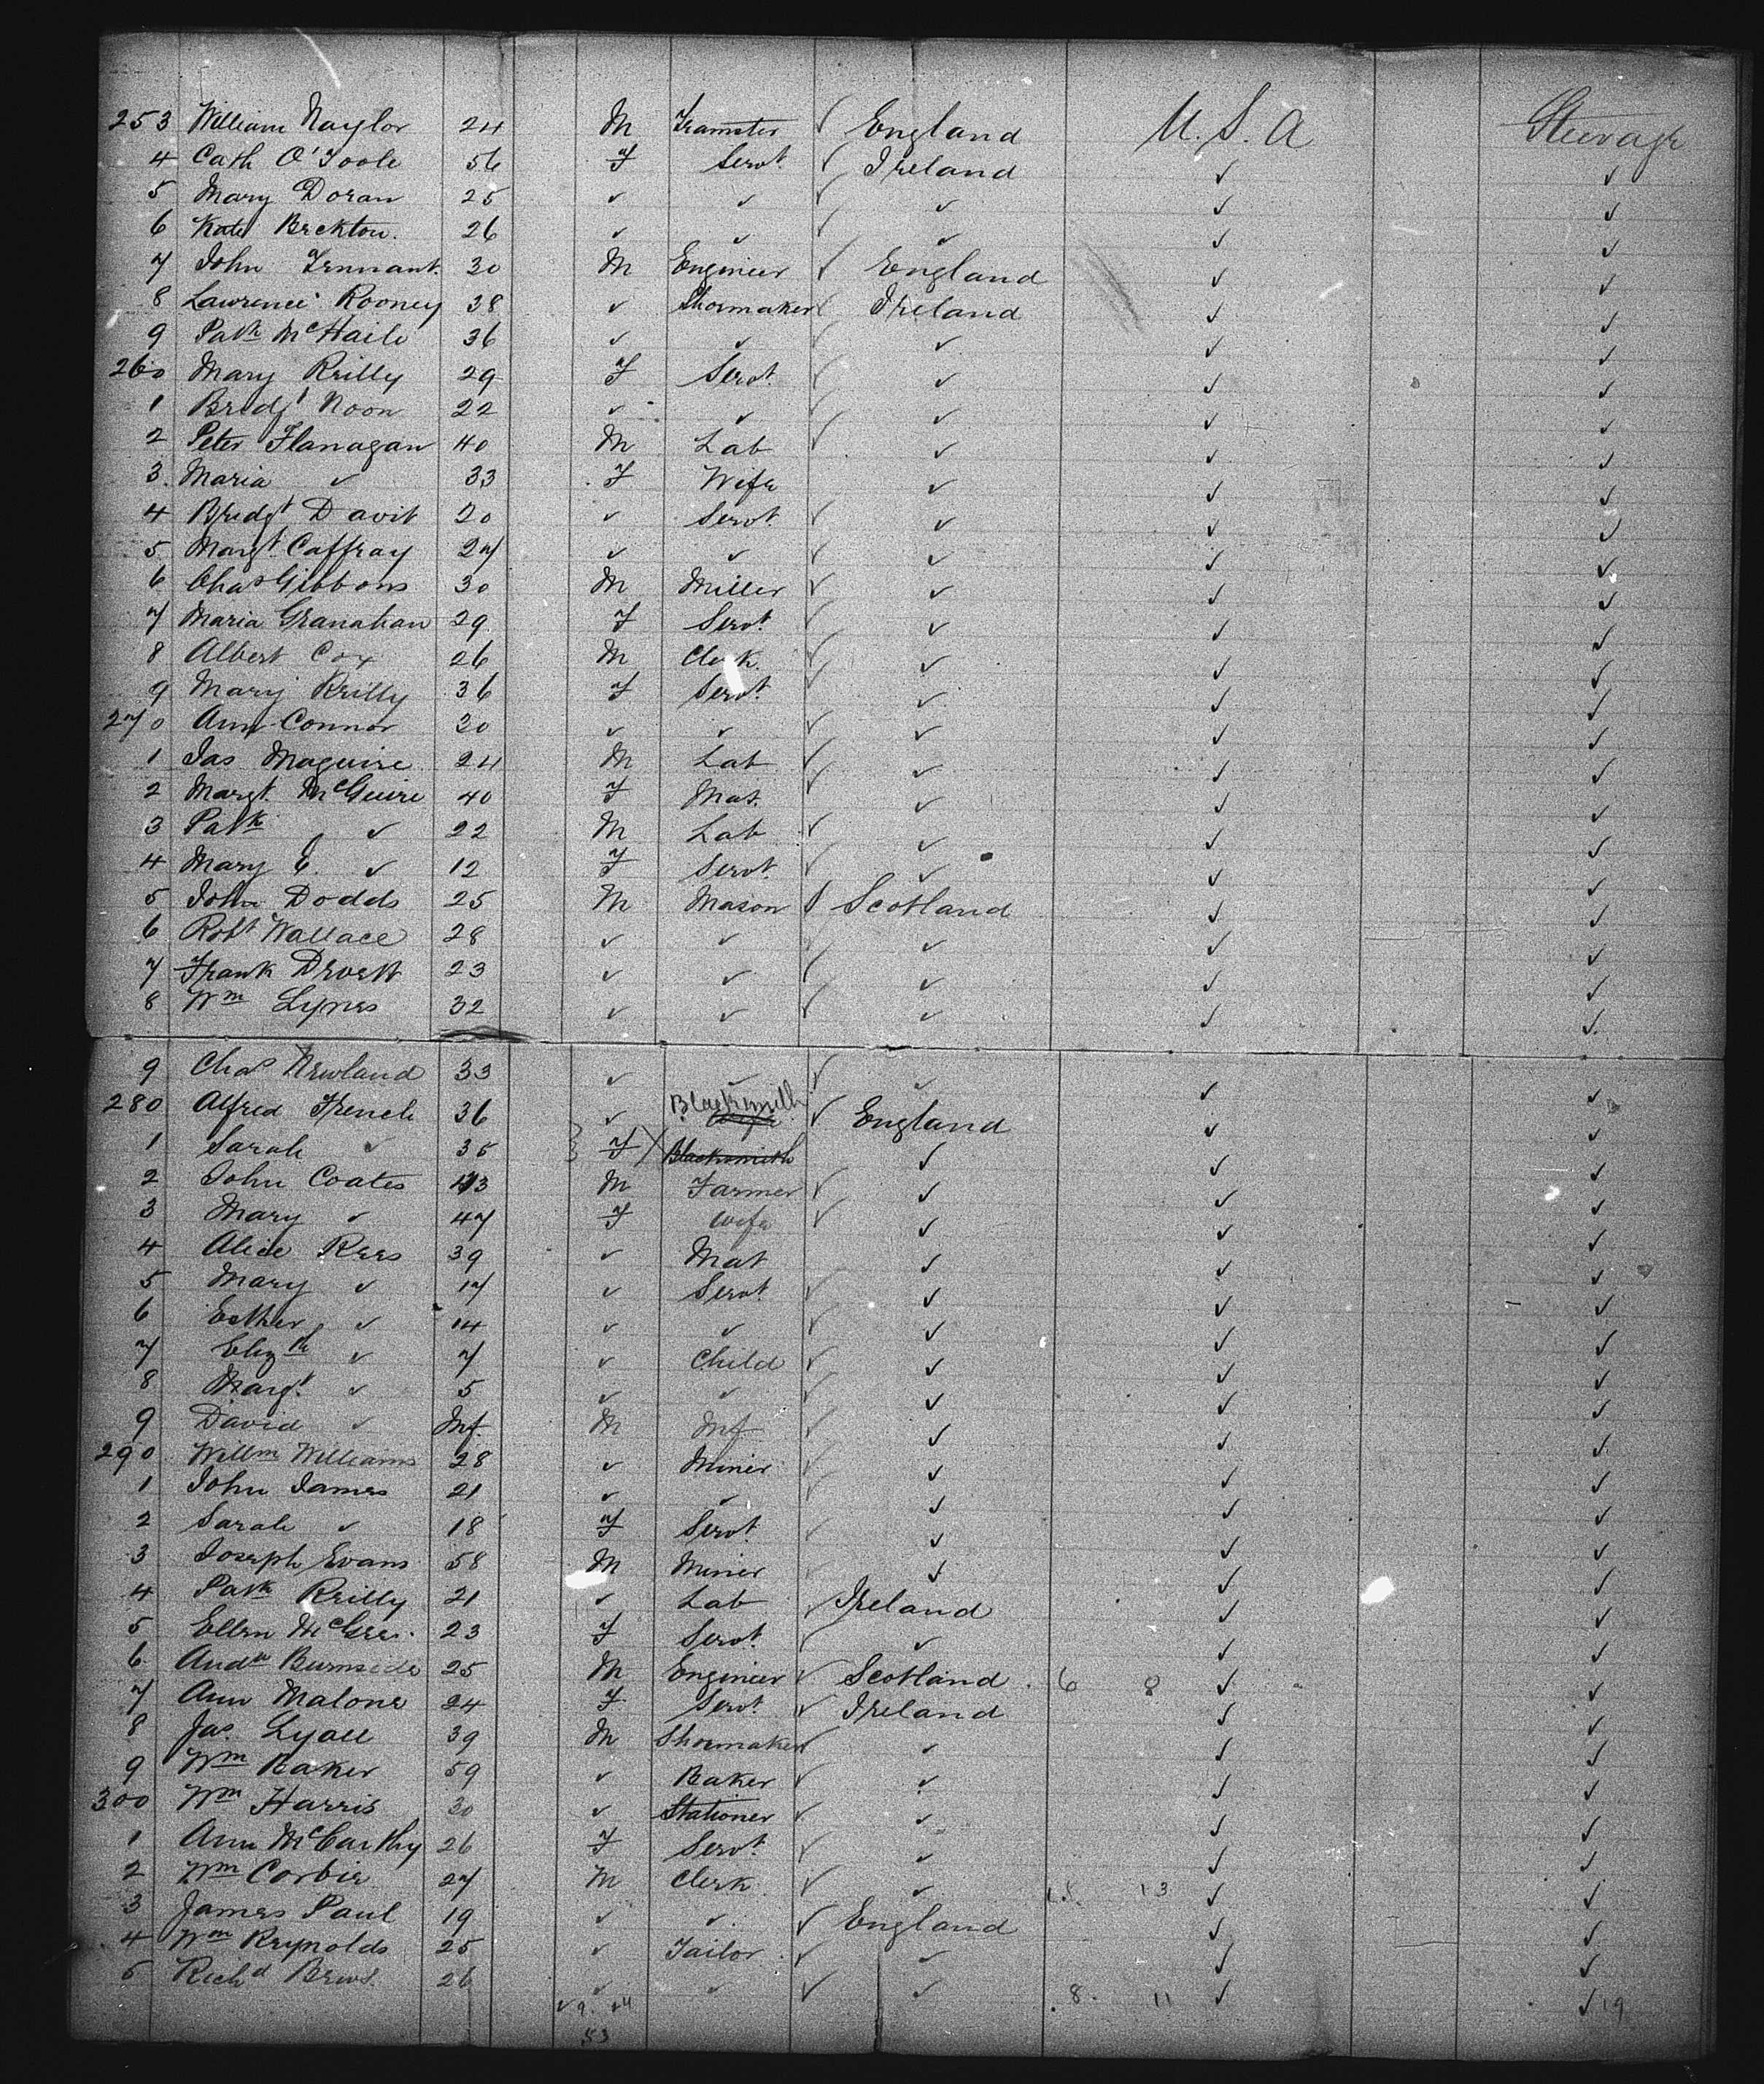 253 William Naylor 24 M Teamster ✓ England U.S.A Steerage
4 Cath O'Toole 56 F Servt ✓ Ireland ✓ ✓
5 Mary Doran 25 ✓ ✓ ✓ ✓ ✓ ✓
6 Kate Beckton. 26 ✓ ✓ ✓ ✓ ✓ ✓
7 John Tennant. 30 M Engineer ✓ England ✓ ✓
8 Lawrence Rooney 38 ✓ Shoemaker ✓ Ireland ✓ ✓
9 Patk McHaile 36 ✓ ✓ ✓ ✓ ✓ ✓
260 Mary Reilly 29 F Servt ✓ ✓ ✓ ✓
1 Bridgt Noon 22 ✓ ✓ ✓ ✓ ✓ ✓
2 Peter Flanagan 40 M Lab ✓ ✓ ✓ ✓
3. Maria ✓ 33 F Wife ✓ ✓ ✓
4 Bridgt Davit 20 ✓ Servt ✓ ✓ ✓ ✓
5 Margt Caffray 27 ✓ ✓ ✓ ✓ ✓ ✓
6 Chas Gibbons 30 M Miller ✓ ✓ ✓ ✓
7 Maria Granahan 29 F Servt. ✓ ✓ ✓ ✓
8 Albert Cox 26 M Clerk ✓ ✓ ✓ ✓
9 Mary Reilly 36 F Servt. ✓ ✓ ✓ ✓
270 Ann Connor 30 ✓ ✓ ✓ ✓ ✓ ✓
1 Jas Maguire 24 M Lab ✓ ✓ ✓ ✓
2 Margt. McGuire 40 F Mat. ✓ ✓ ✓ ✓
3 Patk ✓ 22 M Lab ✓ ✓ ✓ ✓
4 Mary E. ✓ 12 F Servt. ✓ ✓ ✓ ✓
5 John Dodds 25 M Mason ✓ Scotland ✓ ✓
6 Robt Wallace 28 ✓ ✓ ✓ ✓ ✓ ✓
7 Frank 23 ✓ ✓ ✓ ✓ ✓ ✓
8 Wm Lynes 32 ✓ ✓ ✓ ✓ ✓ ✓
9 Chas Newland 33 ✓ ✓ ✓ ✓ ✓ ✓
280 Alfred French 36 ✓ Blacksmith Wife ✓ England ✓ ✓
1 Sarah ✓ 35 F Blacksmith ✓ ✓ ✓
2 John Coates 43 M Farmer ✓ ✓ ✓ ✓
3 Mary ✓ 47 F Wife ✓ ✓ ✓ ✓
4 Alice Rees 39 ✓ Mat ✓ ✓ ✓
5 Mary ✓ 17 ✓ Servt. ✓ ✓ ✓ ✓
6 Esther ✓ 14 ✓ ✓ ✓ ✓ ✓ ✓
7 Elizth ✓ 7 ✓ Child ✓ ✓ ✓ ✓
8 Margt. ✓ 5 ✓ ✓ ✓ ✓ ✓ ✓
9 David ✓ Inf. M Inf ✓ ✓ ✓ ✓
290 Willm Williams 28 ✓ Miner ✓ ✓ ✓ ✓
1 John James 21 ✓ ✓ ✓ ✓ ✓
2 Sarah ✓ 18 F Servt. ✓ ✓ ✓ ✓
3 Joseph Evans 58 M Miner ✓ ✓ ✓
4 Patk Reilly 21 ✓ Lab ✓ Ireland ✓ ✓
5 Ellen McGee. 23 F Servt. ✓ ✓ ✓ ✓
6. Andw Burnside 25 M Engineer ✓ Scotland . 6 8 ✓ ✓
7 Ann Malone 24 F Servt. ✓ Ireland ✓ ✓
8 Jas. Lyall 39 M Shoemaker ✓ ✓ ✓ ✓
9 Wm Baker 59 ✓ Baker ✓ ✓ ✓ ✓
300 Wm Harris 30 ✓ Stationer ✓ ✓ ✓ ✓
1 Ann McCarthy 26 F Servt. ✓ ✓ ✓ ✓
2 Wm Corbie 27 M Clerk ✓ ✓ 13 ✓ ✓
3 James Paul 19 ✓ ✓ ✓ England ✓ ✓
4 Wm Reynolds 25 ✓ Tailor ✓ ✓ ✓ ✓
5 Richd 26 ✓ ✓ ✓ ✓ 8. 11 ✓ ✓ 19
53